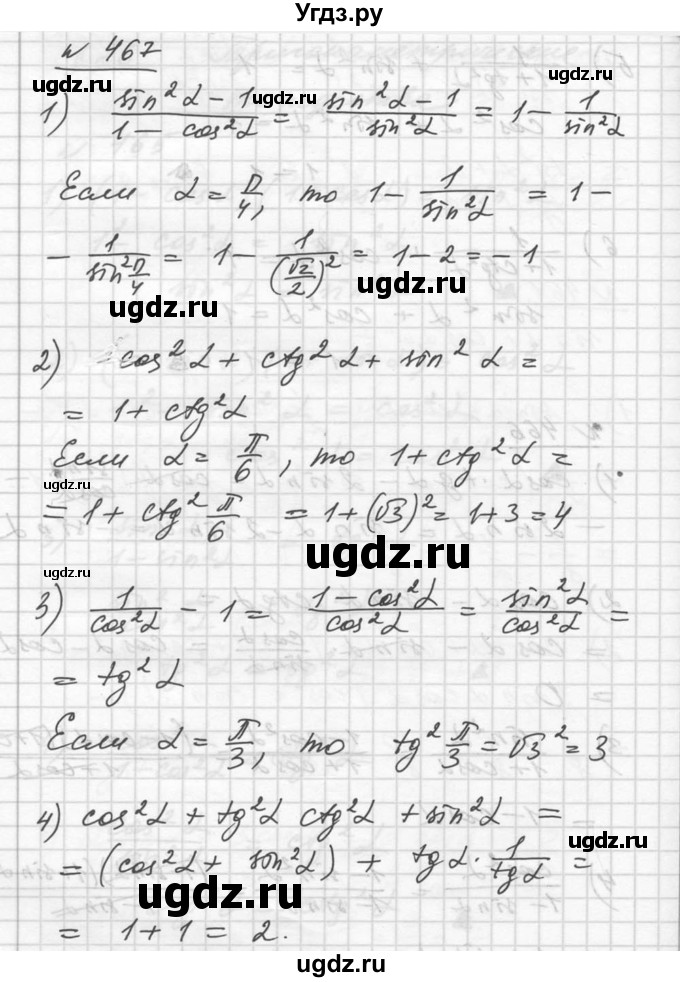 Угдз.ру
№ 467
ugdz.ru
ugdz.ru
ugdz.ru
1) (sin²α - 1)/(1 - cos²α) = (sin²α - 1)/(sin²α) = 1 - 1/sin²α
Если α = π/4, то 1 - 1/sin²α = 1 -
- 1/(sin² π/4) = 1 - 1/(√2/2)² = 1 - 2 = -1
ugdz.ru
ugdz.ru
2) cos²α + ctg²α + sin²α =
= 1 + ctg²α
Если α = π/6, то 1 + ctg²α =
ugdz.ru
= 1 + ctg² π/6 = 1 + (√3)² = 1 + 3 = 4
ugdz.ru
ugdz.ru
3) 1/cos²α - 1 = (1 - cos²α)/cos²α = sin²α/cos²α =
= tg²α
Если α = π/3, то tg² π/3 = √3² = 3
4) cos²α + tg²α ctg²α + sin²α =
ugdz.ru
= (cos²α + sin²α) + tgα · 1/tgα =
ugdz.ru
= 1 + 1 = 2.
ugdz.ru